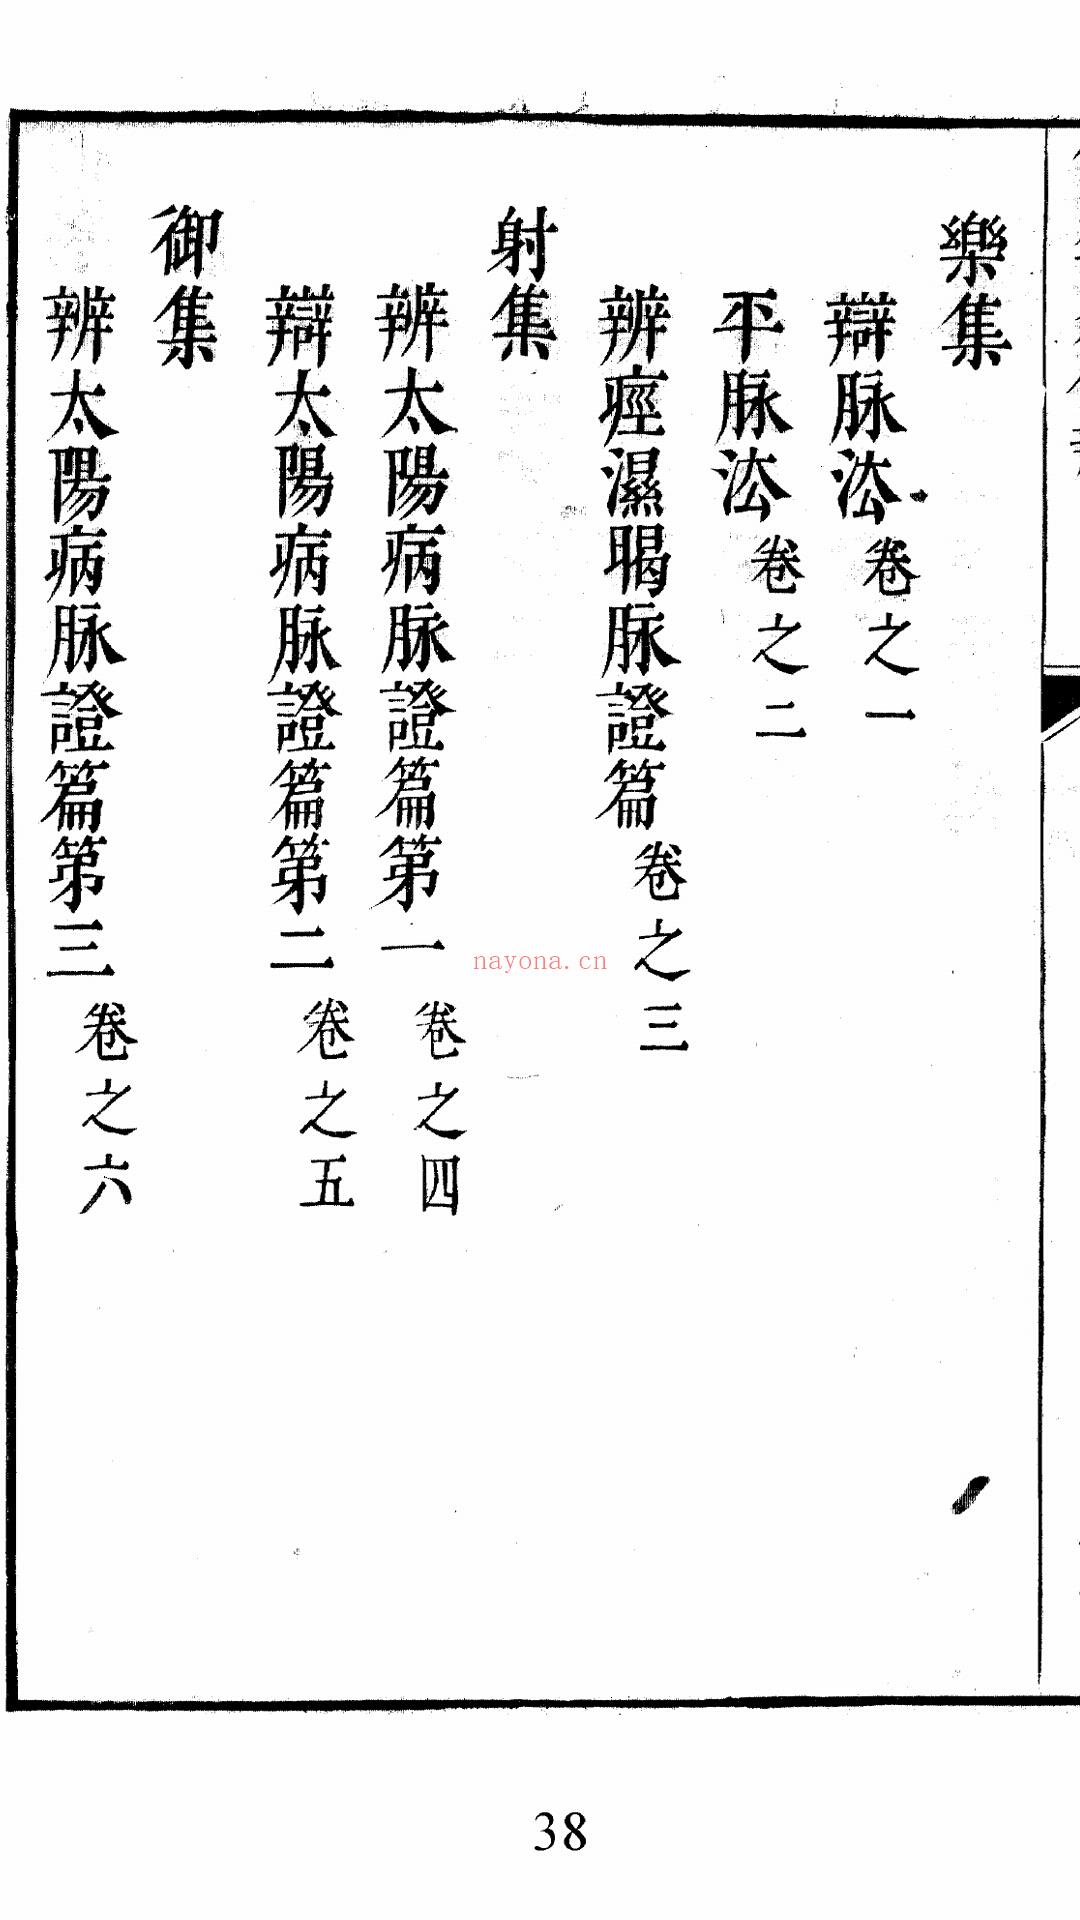 樂集
辯脉法卷之一
平脉法卷之二
辨痙濕暍脉證篇卷之三
射集
辨太陽病脉證篇第一卷之四
辯太陽病脉證篇第二卷之五
御集
辨太陽病脉證篇第三卷之六
nayona.cn
38